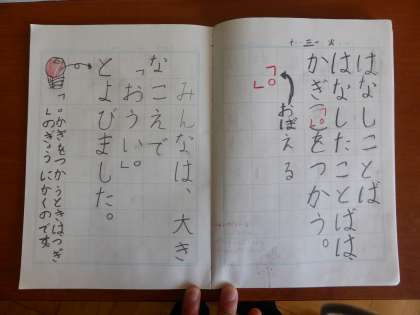 十.三一 火
はなしことば
はなしたことばは、
かぎっこをつかう。
「。」
おぼえる
「。」
みんなは、大き
なこえで
「おうい。」
とよびました。
「。かぎをつかうときはつぎ
」のぎょうにかくのです